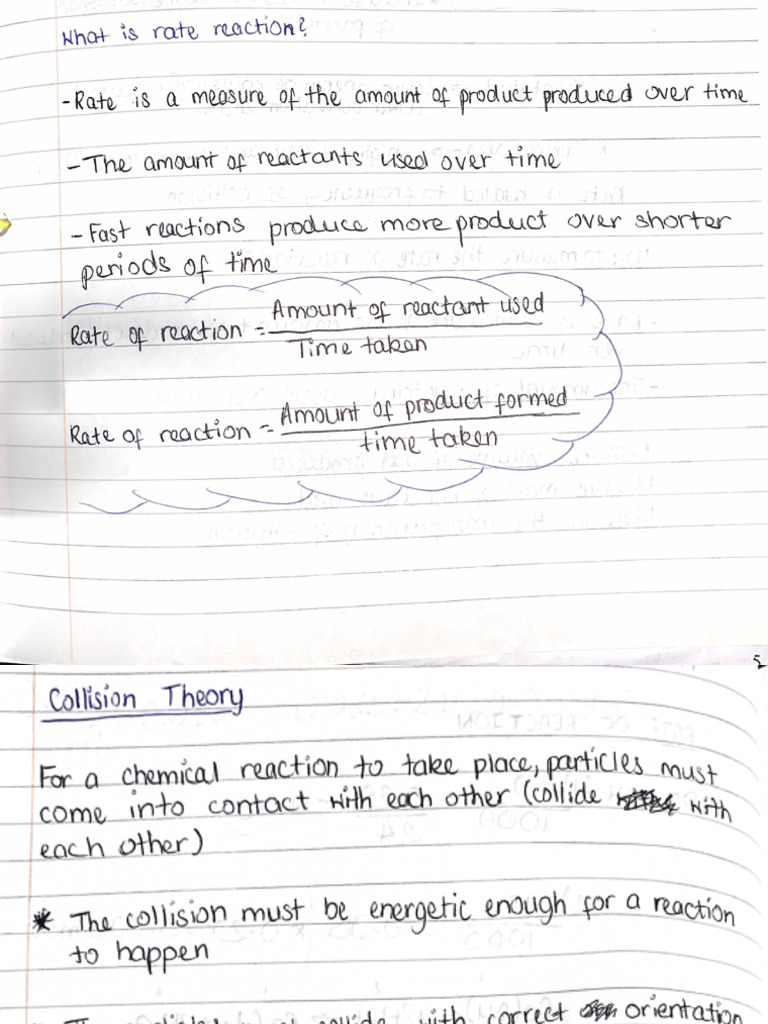 What is rate reaction?
-Rate is a measure of the amount of product produced over time
- The amount of reactants used over time
- Fast reactions produce more product over shorter
periods of time
Rate of reaction = Amount of reactant used
Time taken
Rate of reaction = Amount of product formed
time taken
Collision Theory
For a chemical reaction to take place, particles must
come into contact with each other (collide with
each other)
* The collision must be energetic enough for a reaction
to happen
collide with correct orientation